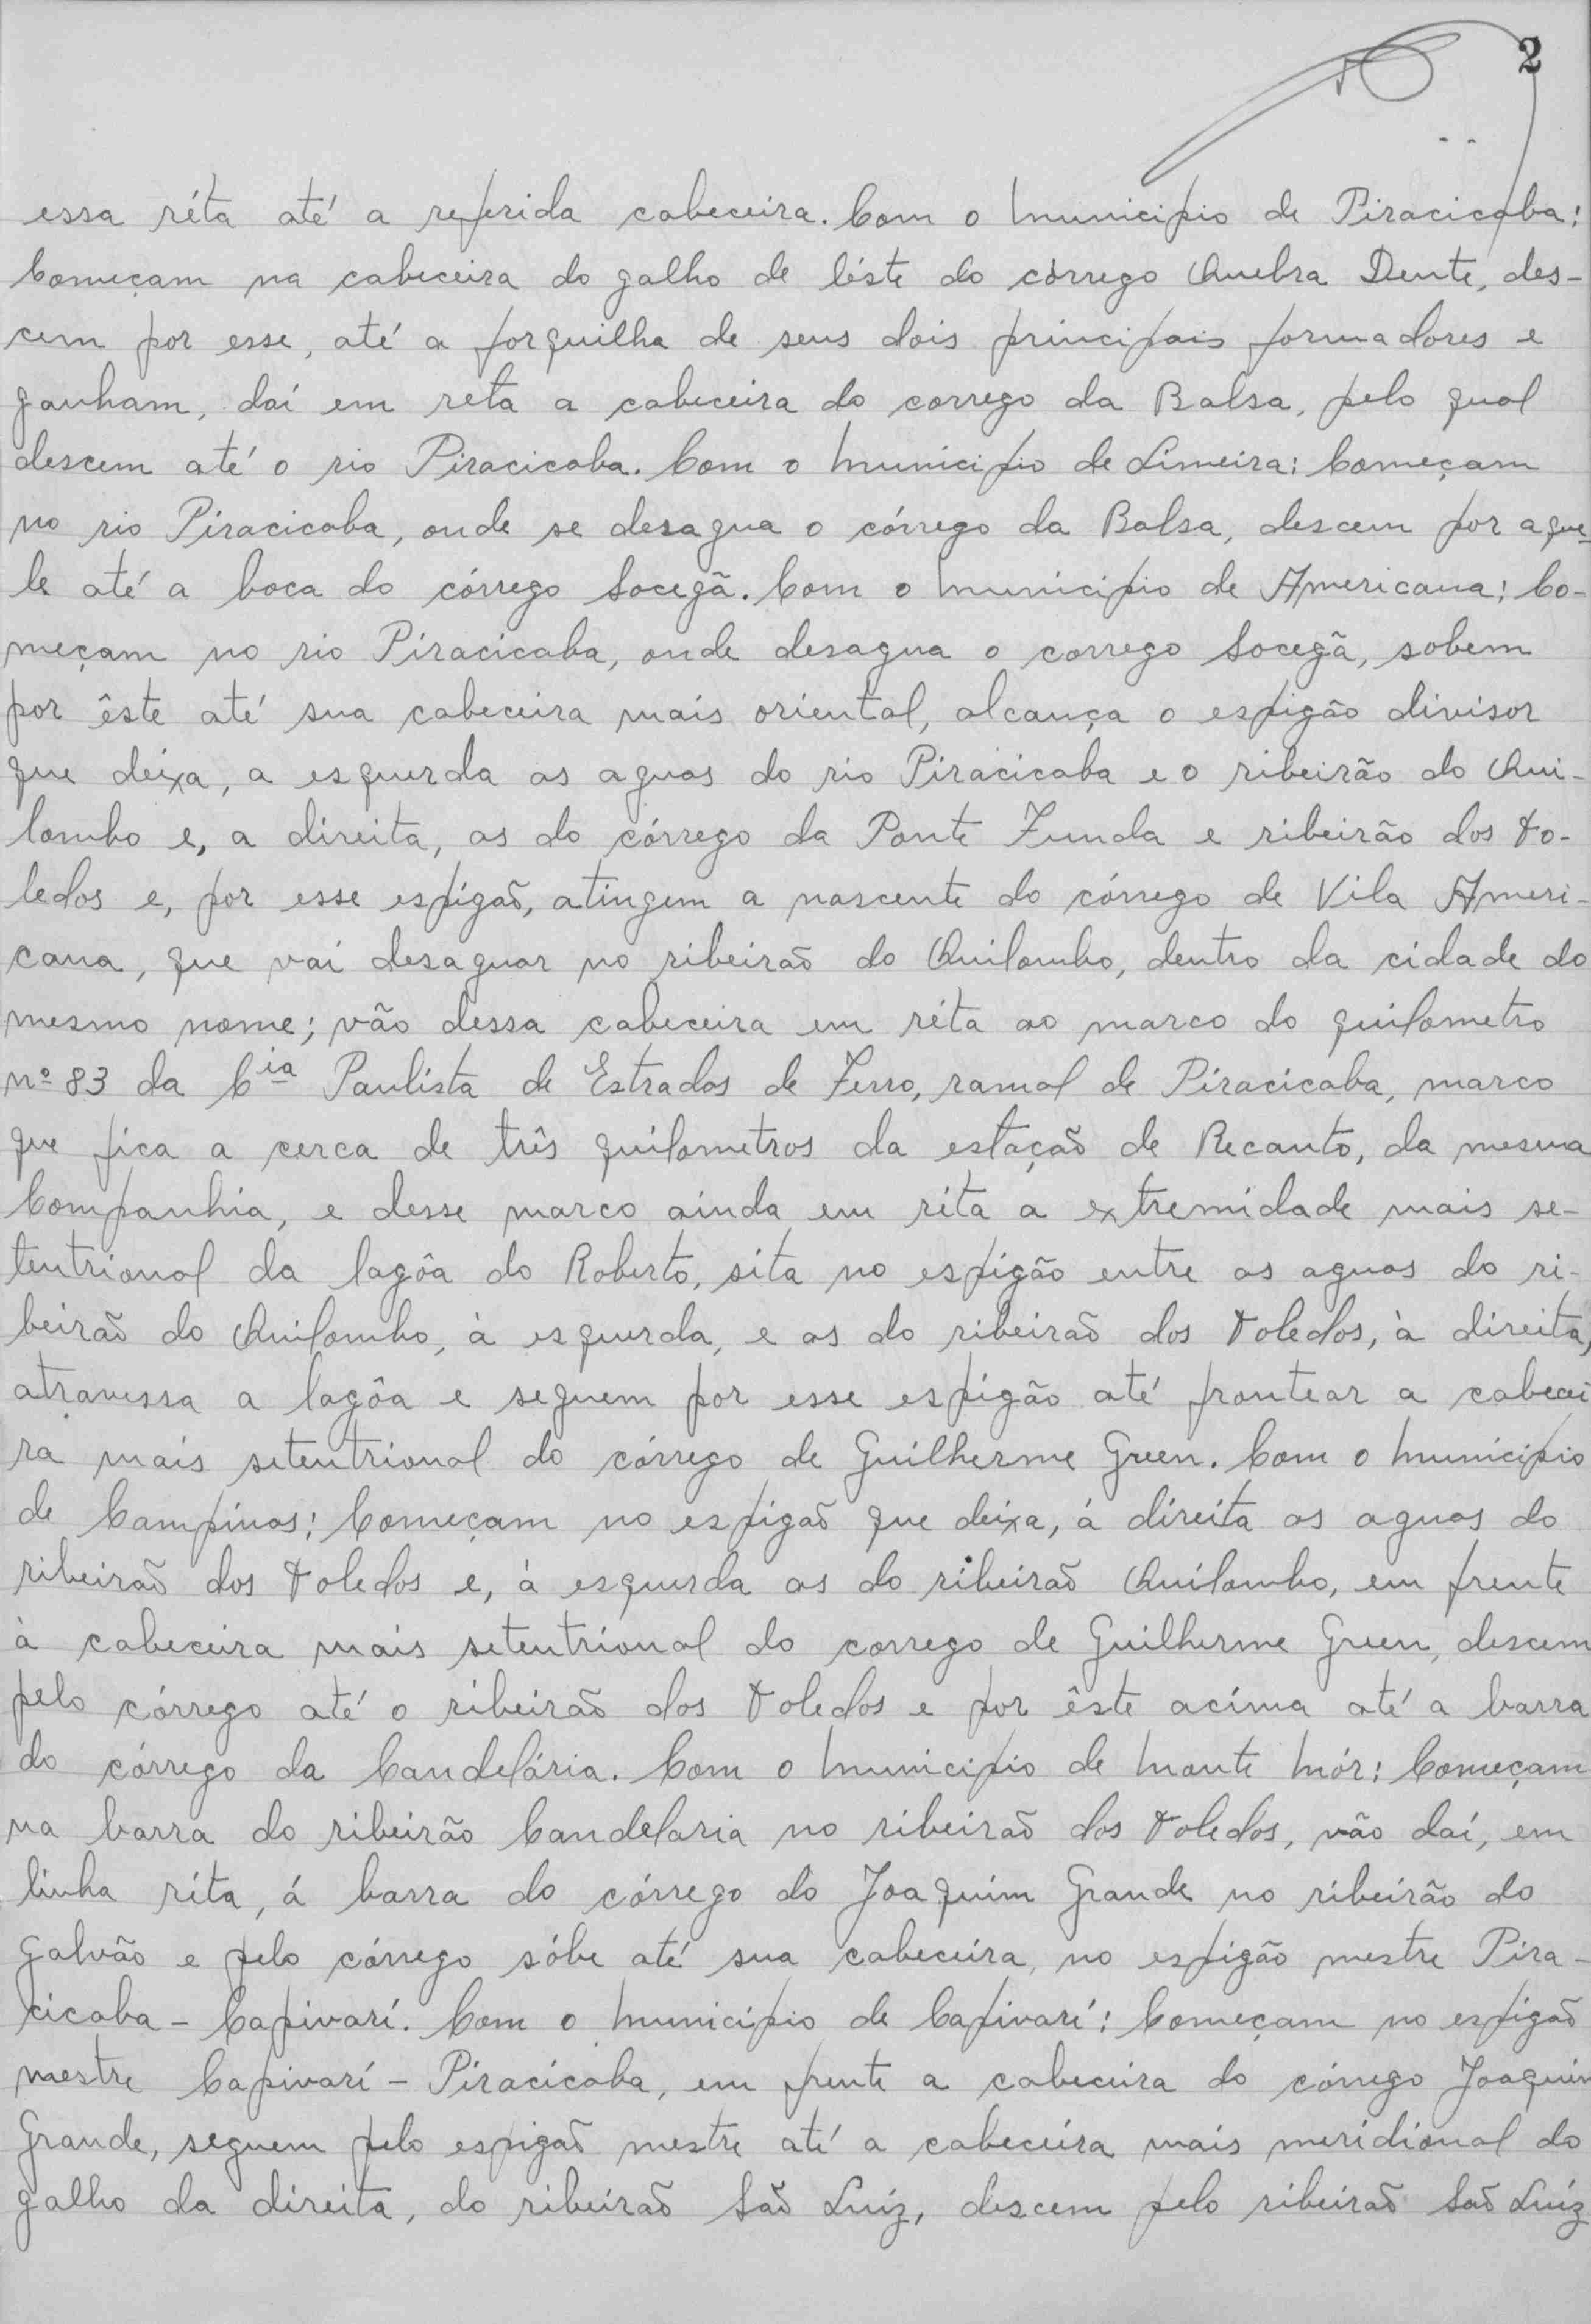 2
essa réta até a referida cabeceira. Com o Municipio de Piracicaba:
Começam na cabeceira do galho de léste do córrego Quebra Dente, des-
cem por esse, até a forquilha de seus dois principais formadores e
ganham, daí em reta a cabeceira do corrego da Balsa, pelo qual
descem até o rio Piracicaba. Com o Municipio de Limeira: Começam
no rio Piracicaba, onde se desagua o córrego da Balsa, descem por aque-
le até a boca do córrego Socegã. Com o Municipio de Americana: Co-
meçam no rio Piracicaba, onde desagua o corrego Socegã, sobem
por êste até sua cabeceira mais oriental, alcança o espigão divisor
que deixa, a esquerda as aguas do rio Piracicaba e o ribeirão do Qui-
lombo e, a direita, as do córrego da Ponte Funda e ribeirão dos To-
ledos e, por esse espigão, atingem a nascente do córrego de Vila Ameri-
cana, que vai desaguar no ribeirão do Quilombo, dentro da cidade do
mesmo nome; vão dessa cabeceira em réta ao marco do quilometro
nº 83 da Cia Paulista de Estradas de Ferro, ramal de Piracicaba, marco
que fica a cerca de três quilometros da estação de Recanto, da mesma
Companhia, e desse marco ainda em réta a extremidade mais se-
tentrional da lagôa do Roberto, sita no espigão entre as aguas do ri-
beirão do Quilombo, à esquerda, e as do ribeirão dos Toledos, à direita,
atravessa a lagôa e seguem por esse espigão até frontear a cabecei
ra mais setentrional do córrego de Guilherme Green. Com o Municipio
de Campinas: Começam no espigão que deixa, á direita as aguas do
ribeirão dos Toledos e, à esquerda as do ribeirão Quilombo, em frente
à cabeceira mais setentrional do corrego de Guilherme Green, descem
pelo córrego até o ribeirão dos Toledos e por êste acima até a barra
do córrego da Candelária. Com o Municipio de Monte Mór: Começam
na barra do ribeirão Candelaria no ribeirão dos Toledos, vão daí, em
linha réta, á barra do córrego do Joaquim Grande no ribeirão do
Galvão e pelo córrego sóbe até sua cabeceira, no espigão mestre Pira-
cicaba - Capivarí. Com o Municipio de Capivarí: Começam no espigão
mestre Capivarí - Piracicaba, em frente a cabeceira do córrego Joaquim
Grande, seguem pelo espigão mestre até a cabeceira mais meridional do
galho da direita, do ribeirão São Luiz, descem pelo ribeirão São Luiz